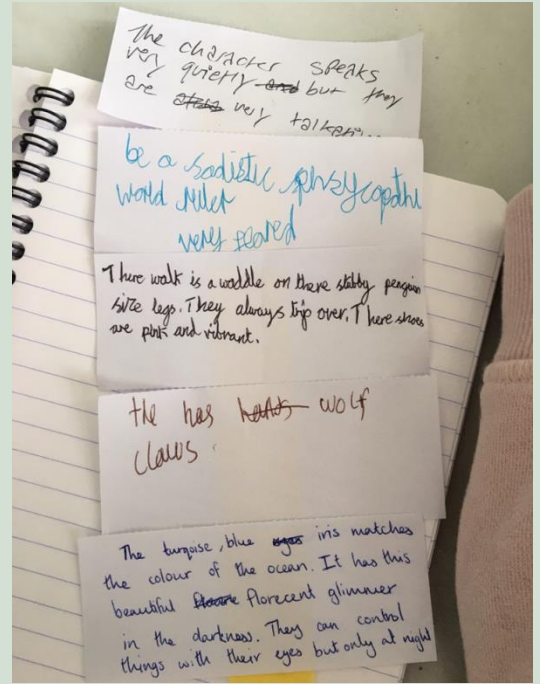 The character speaks
very quietly and but they
are very talkativ...
be a sadistic phsycopathi
world ruler
very feared
There walk is a waddle on there stabby penguin
size legs. They always trip over. There shoes
are pink and vibrant.
the has hands wolf
claws
The turqoise, blue eyes iris matches
the colour of the ocean. It has this
beautiful florecent glimmer
in the darkness. They can control
things with their eyes but only at night